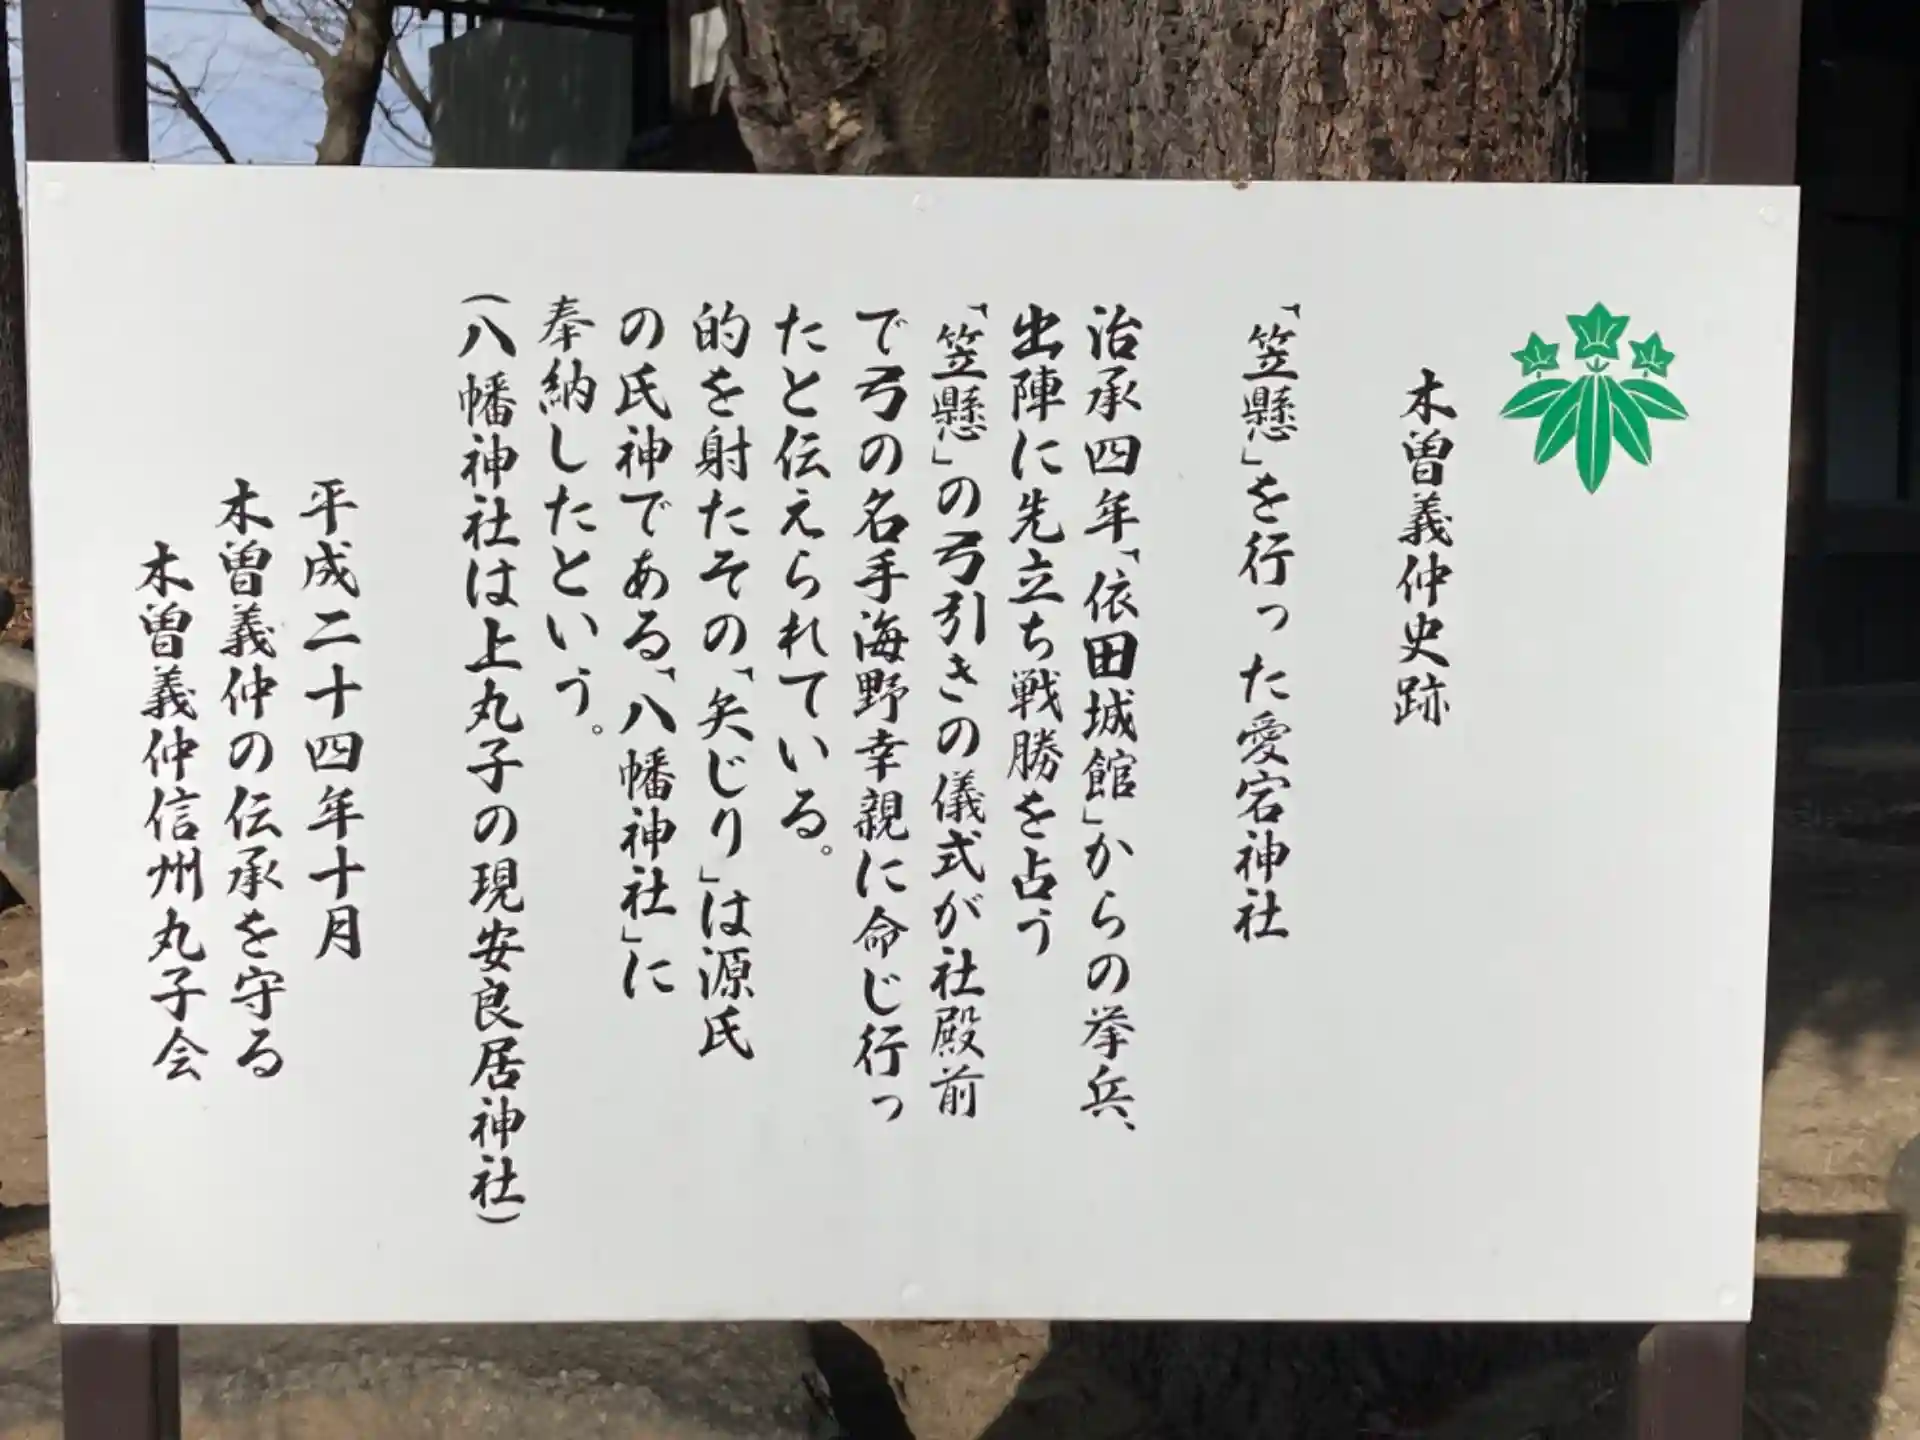 木曽義仲史跡
「笠懸」を行った愛宕神社
治承四年「依田城館」からの挙兵、
出陣に先立ち戦勝を占う
「笠懸」の弓引きの儀式が社殿前
で弓の名手海野幸親に命じ行っ
たと伝えられている。
的を射たその「矢じり」は源氏
の氏神である「八幡神社」に
奉納したという。
(八幡神社は上丸子の現安良居神社)
平成二十四年十月
木曽義仲の伝承を守る
木曽義仲信州丸子会